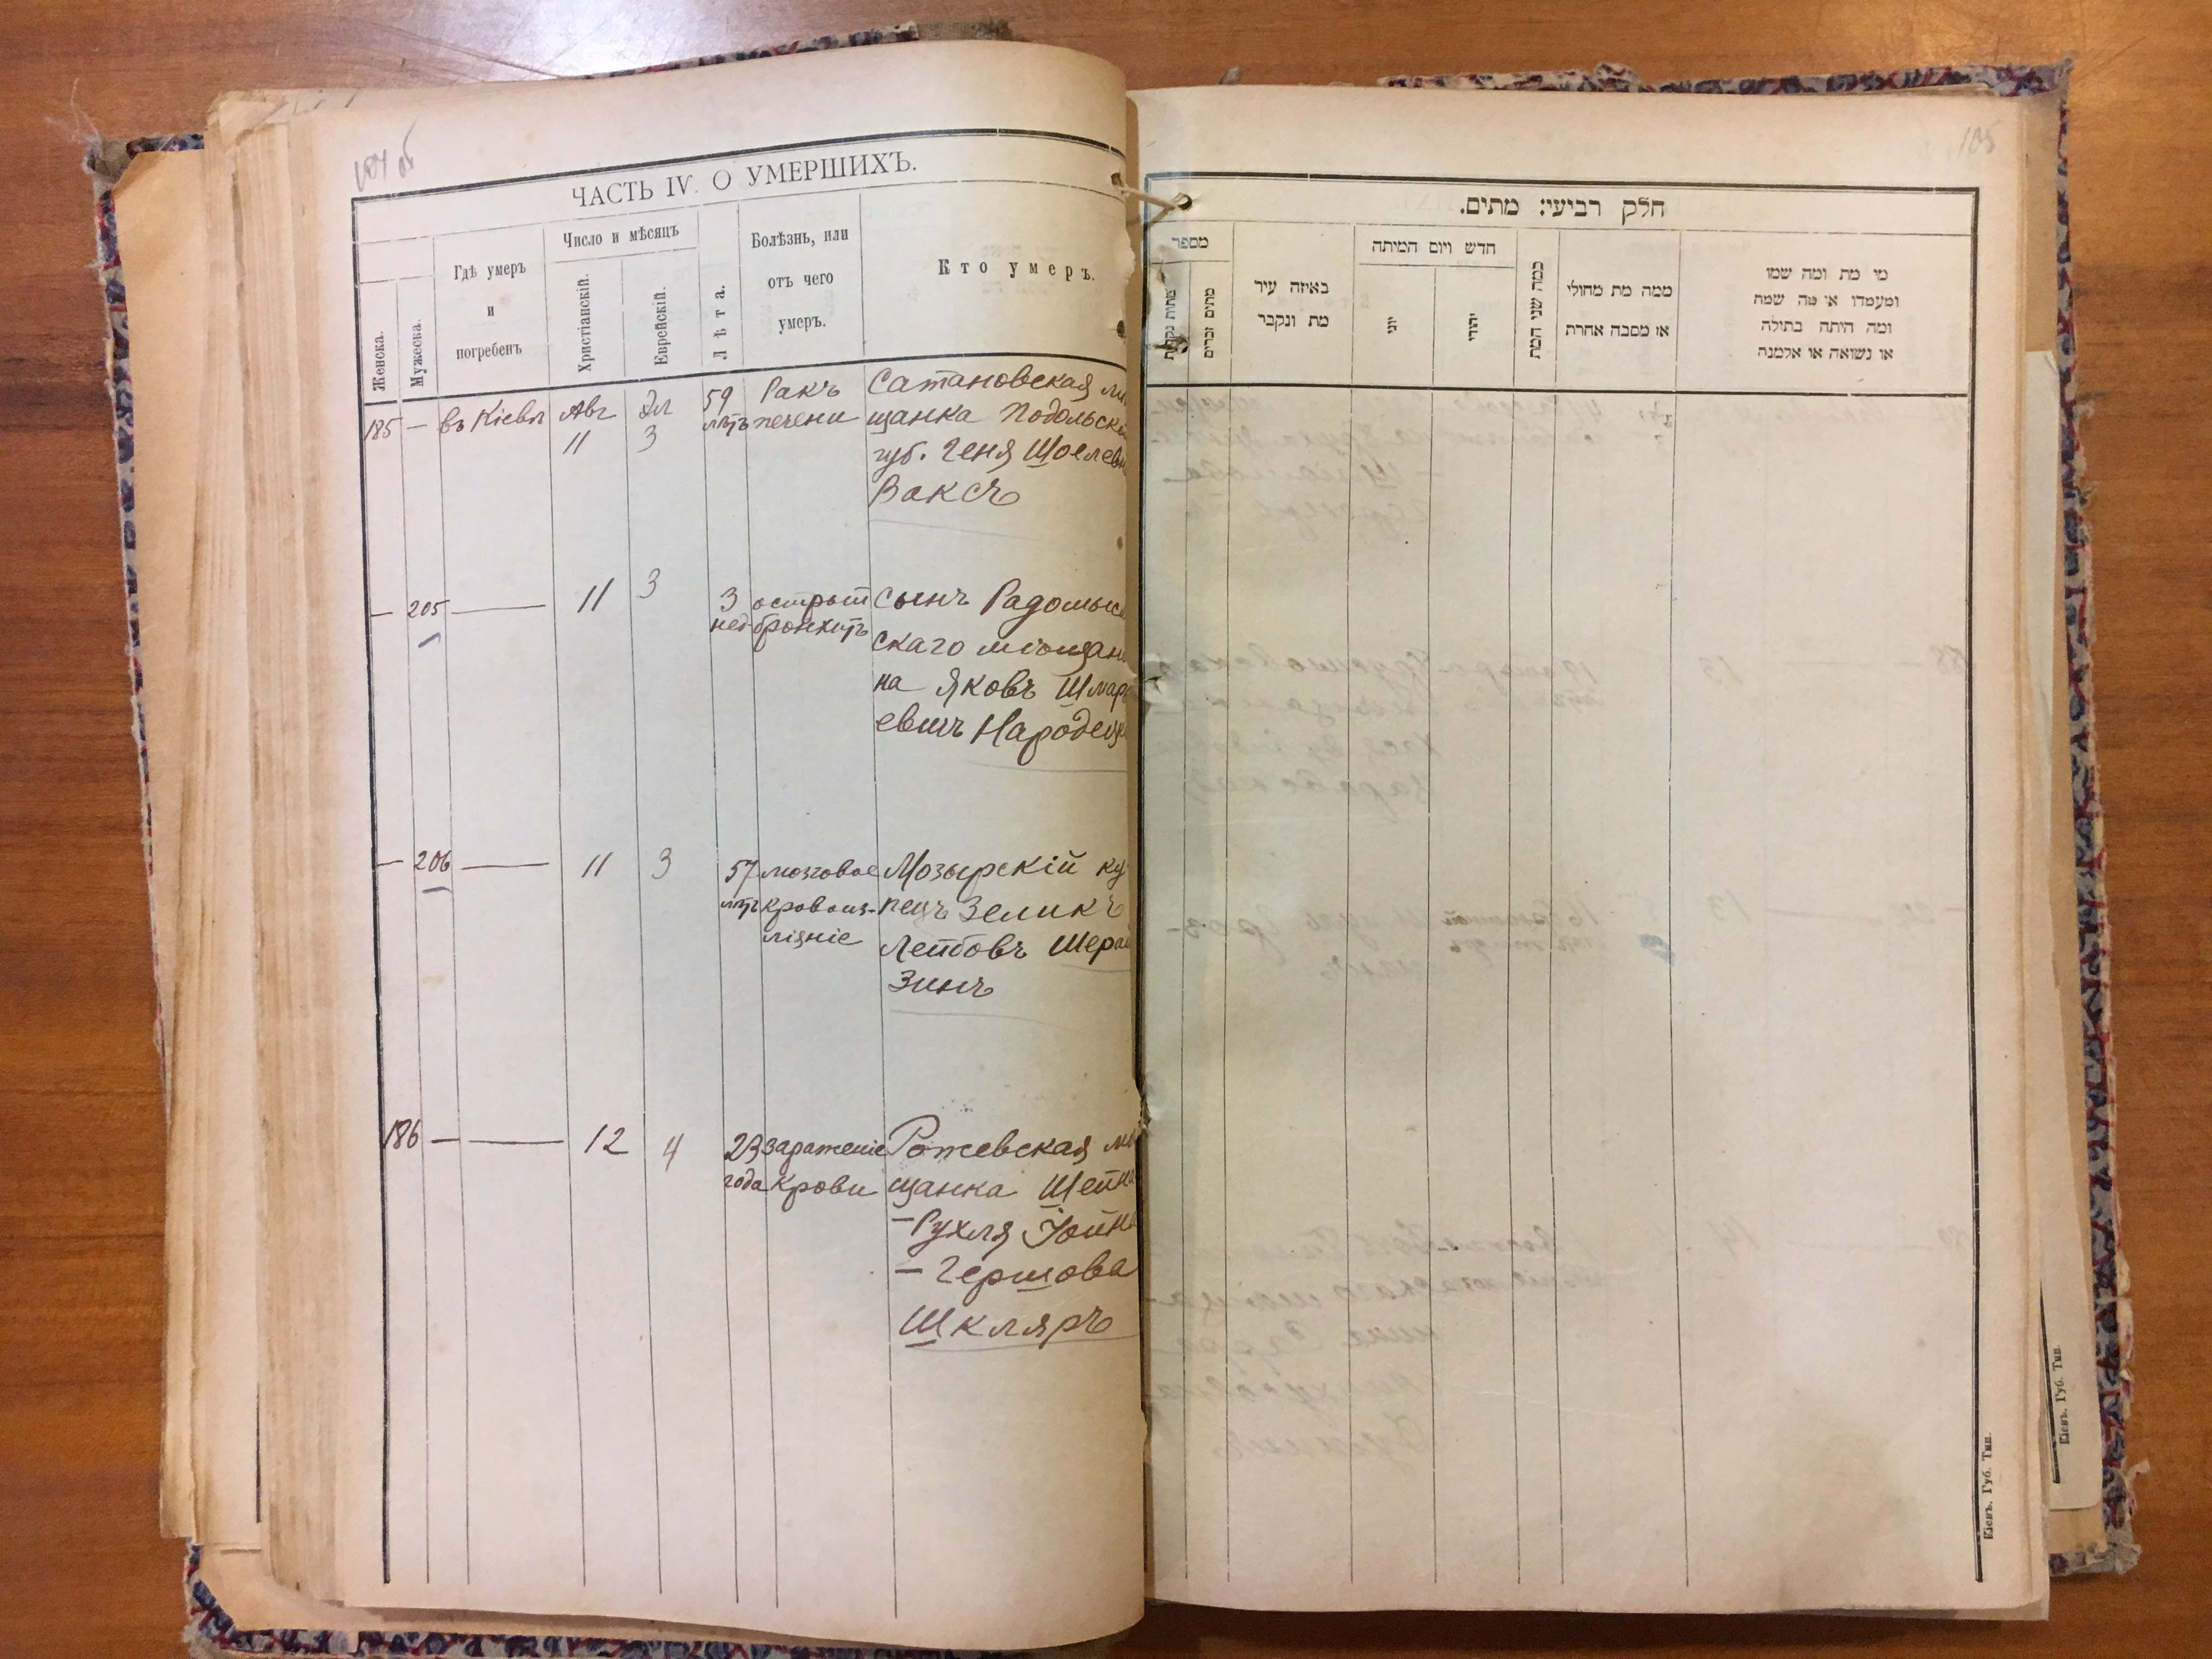 104 об
ЧАСТЬ IV. О УМЕРШИХЪ.
Женска.
Мужеска.
Гдѣ умеръ
и
погребенъ
Число и мѣсяцъ
Христіанскій.
Еврейскій.
Лѣта.
Болѣзнь, или
отъ чего
умеръ.
Кто умеръ.
185 — въ Кіевѣ Авг Эл 59 Ракъ Сатановская
11 3 лѣтъ печени щанка Подольск
губ. Геня Шоелев
Ваксъ
— 205 — 11 3 3 острый сынъ Радомыс
нед бронхитъ
скаго мѣщан
на Яковъ Шмар
евичъ Народец
— 206 — 11 3 57 мозговое Мозырскій ку
лѣтъ кровоиз- пецъ Зеликъ
ліяніе Лейбовъ Шера
Зинъ
186 — — 12 4 23 зараженіе Рожевская мѣ
года крови щанка Шейна
— Рухля Іойна
— Гершова
Шкляръ
105
חלק רביעי: מתים.
מספר
מתות נקבות
מתים זכרים
באיזה עיר
מת ונקבר
חדש ויום המיתה
יוני
יהודי
כמה שני המת
ממה מת מחולי
או מסבה אחרת
מי מת ומה שמו
ומעמדו או מה שמת
ומה היתה בתולה
או נשואה או אלמנה
Кіевъ. Губ. Тип.
Кіевъ. Губ. Тип.